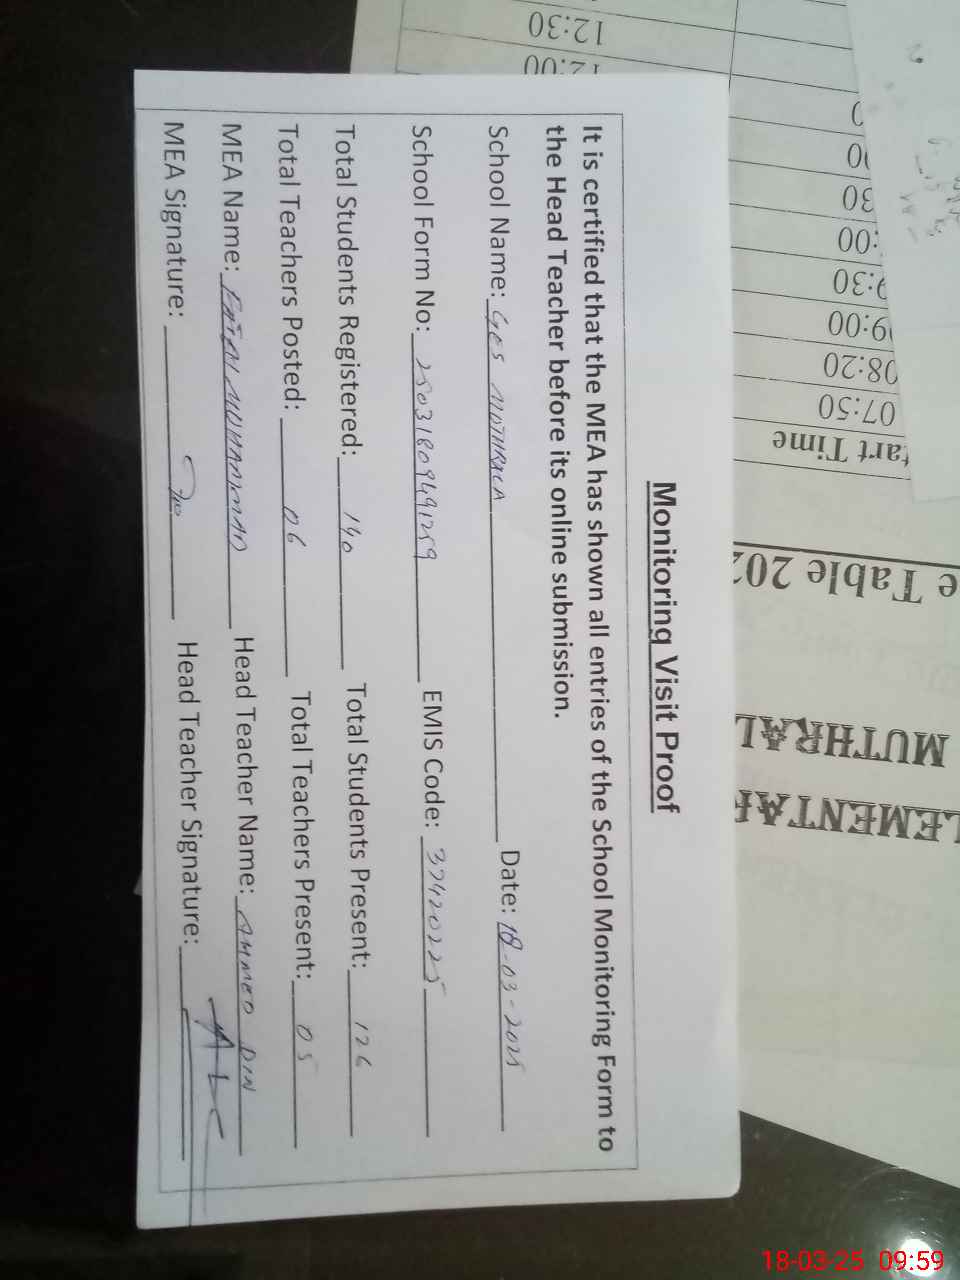 Monitoring Visit Proof
It is certified that the MEA has shown all entries of the School Monitoring Form to
the Head Teacher before its online submission.
School Name: GES MUTHRALA Date: 18-03-2025
School Form No: 25031809491259 EMIS Code: 37420225
Total Students Registered: 140 Total Students Present: 126
Total Teachers Posted: 06 Total Teachers Present: 05
MEA Name: MUHAMMAD Head Teacher Name: AHMED DIN
MEA Signature: Head Teacher Signature:
LEMENTAR
MUTHRAL
e Table 202
tart Time
07:50
08:20
09:00
9:30
:00
30
00
0
12:00
12:30
18-03-25 09:59